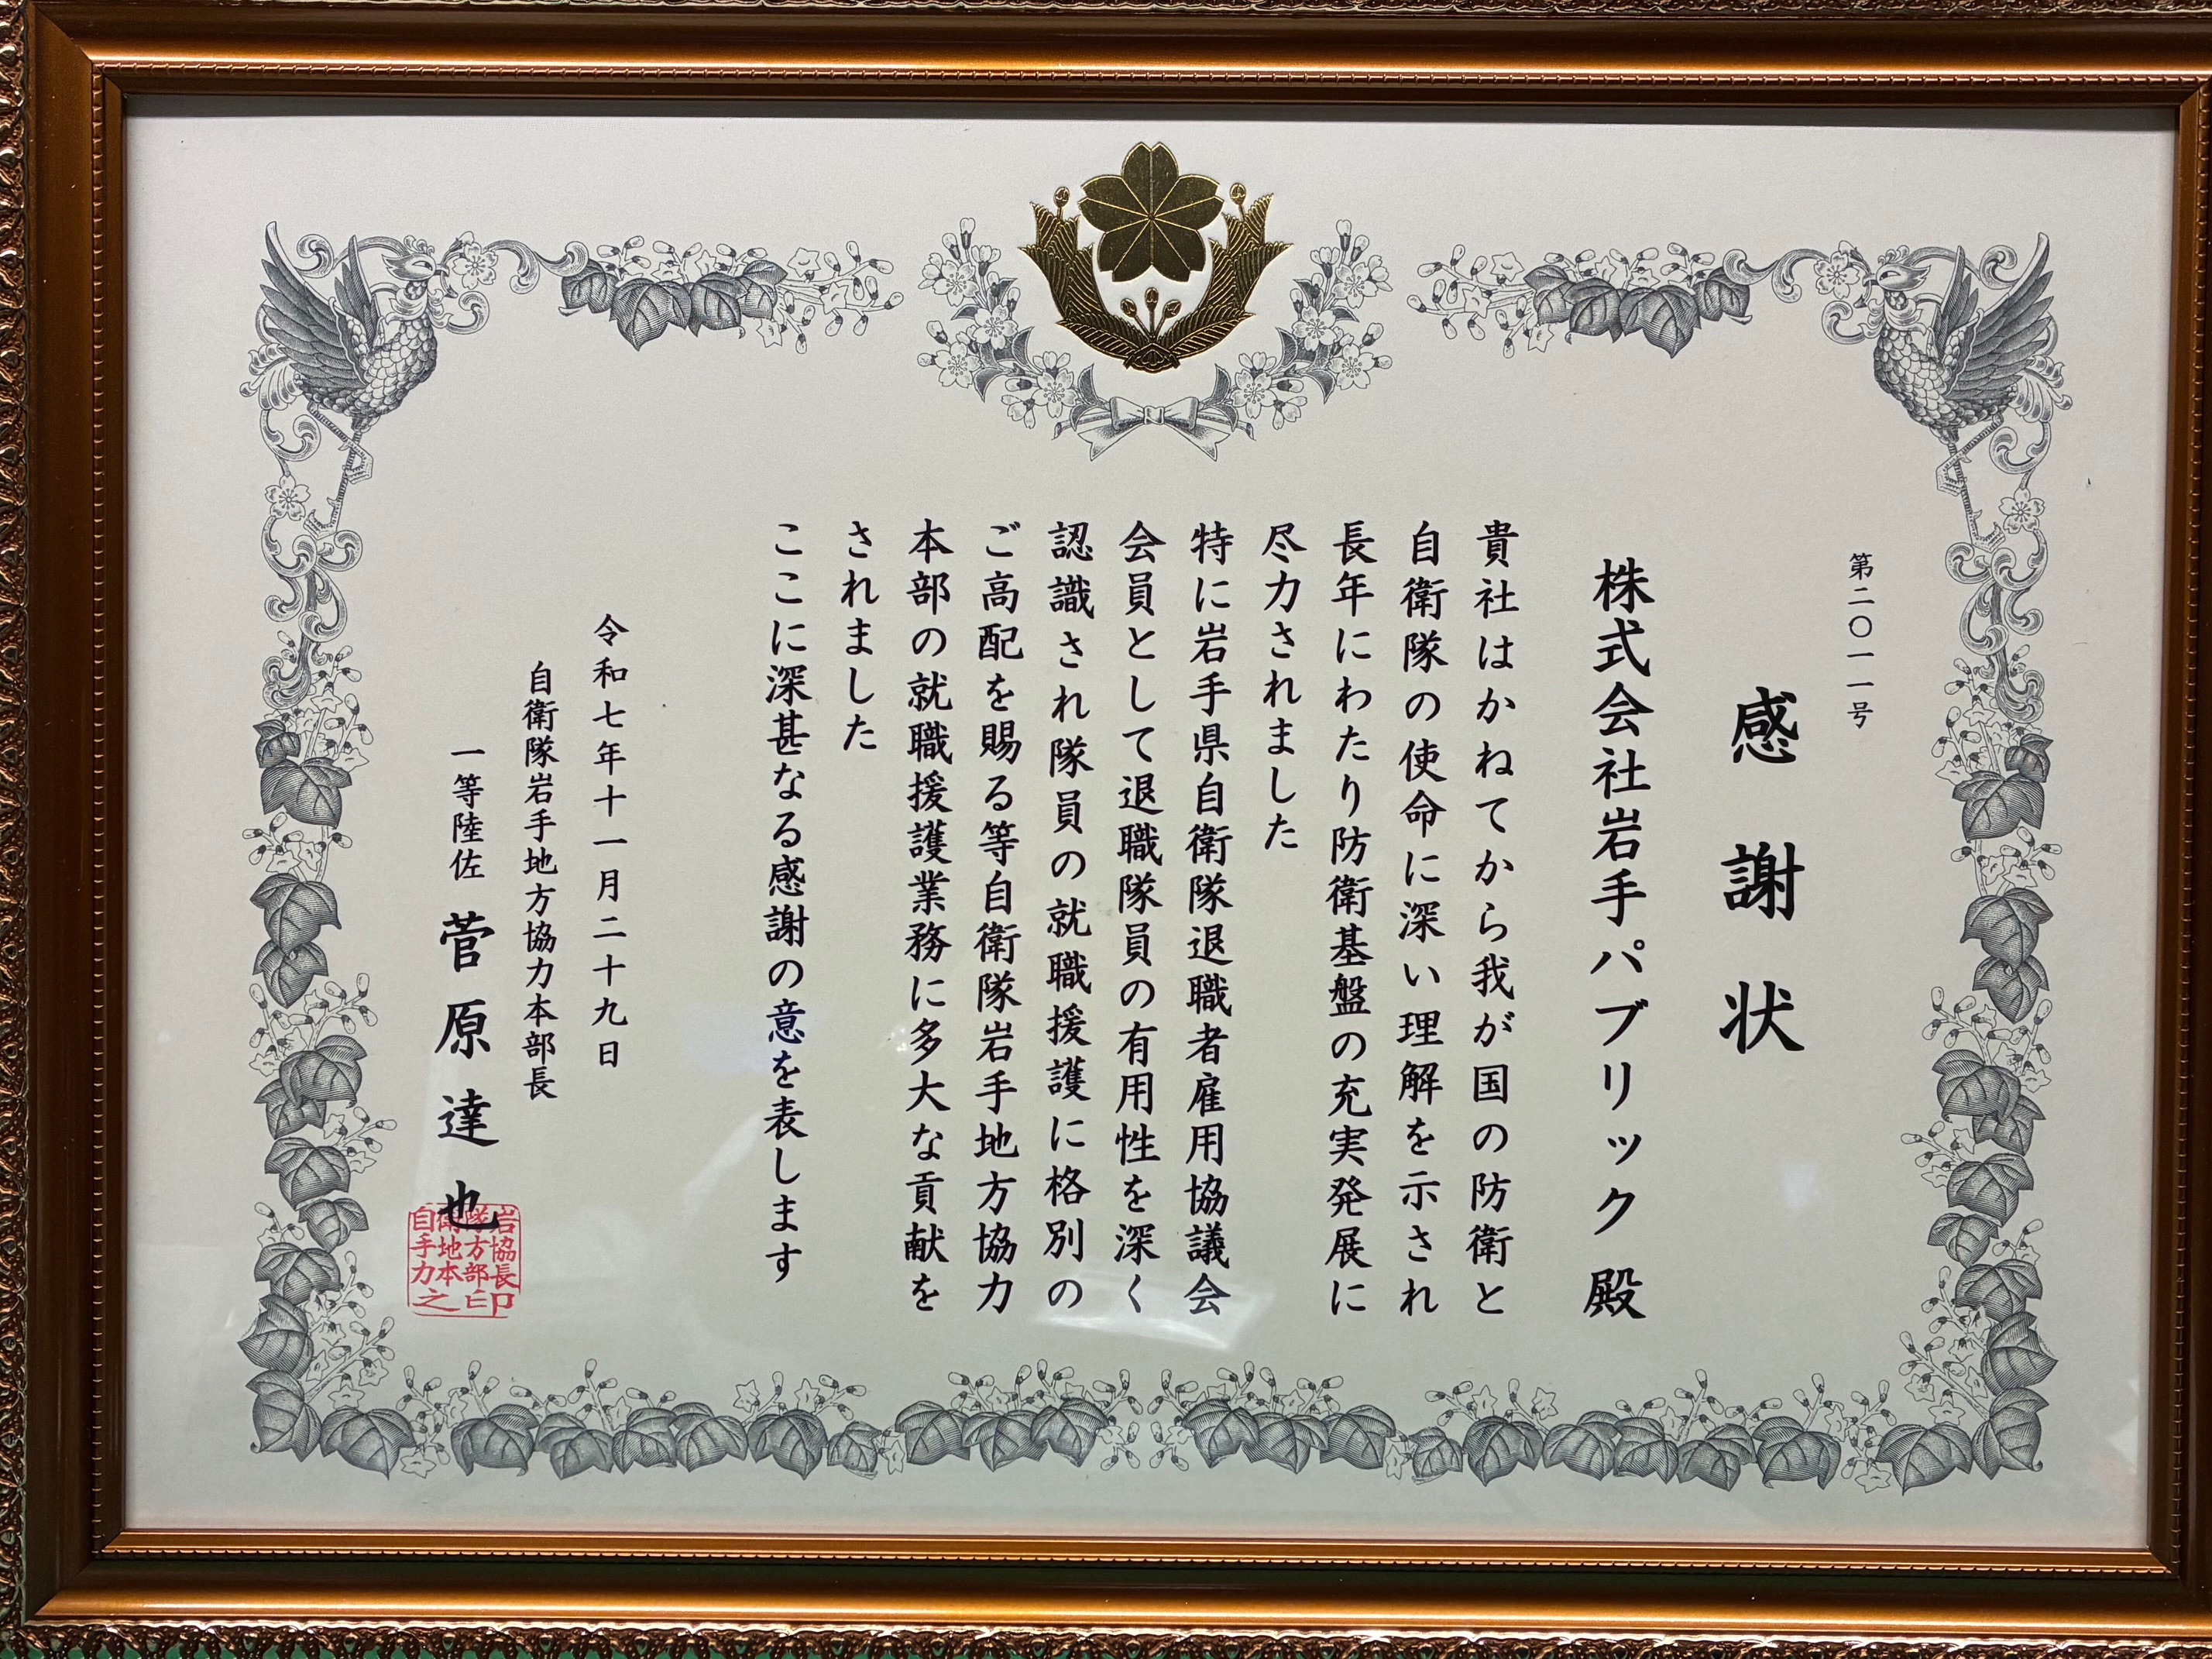 第二〇一一号
感謝状
株式会社岩手パブリック殿
貴社はかねてから我が国の防衛と
自衛隊の使命に深い理解を示され
長年にわたり防衛基盤の充実発展に
尽力されました
特に岩手県自衛隊退職者雇用協議会
会員として退職隊員の有用性を深く
認識され隊員の就職援護に格別の
ご高配を賜る等自衛隊岩手地方協力
本部の就職援護業務に多大な貢献を
されました
ここに深甚なる感謝の意を表します
令和七年十一月二十九日
自衛隊岩手地方協力本部長
一等陸佐 菅原達也
自衛隊岩
手地方協
力本部長
之印